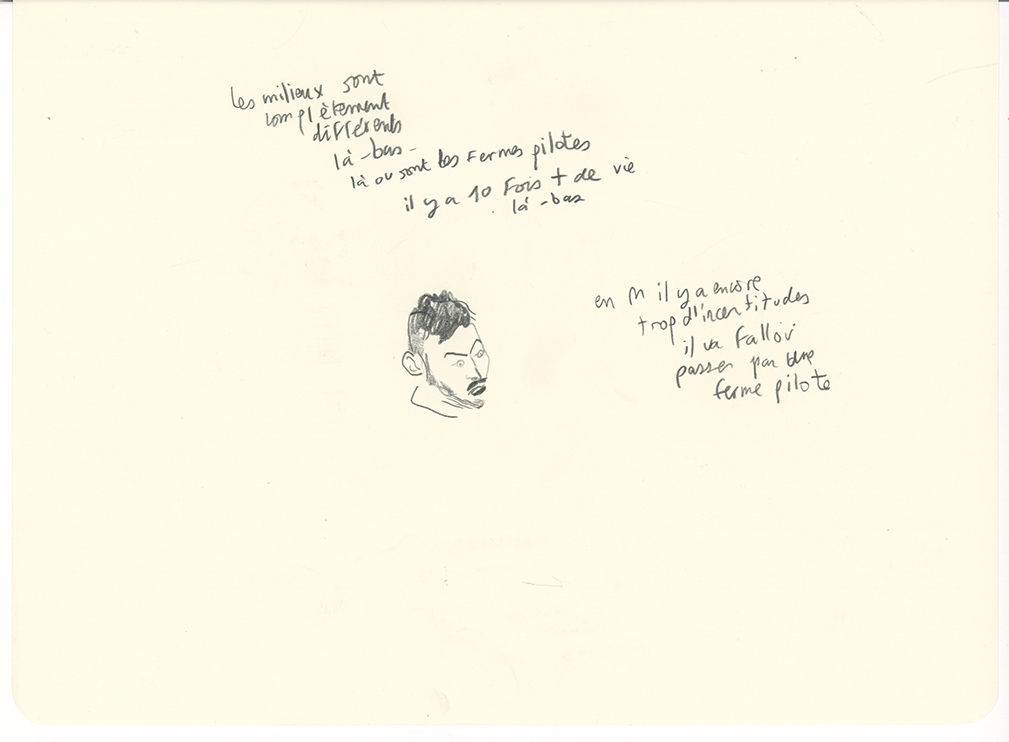 les milieux sont
complètement
différents
là-bas-
là ou sont les fermes pilotes
il y a 10 fois + de vie
là-bas
en M il y a encore
trop d'incertitudes
il va falloir
passer par une
ferme pilote